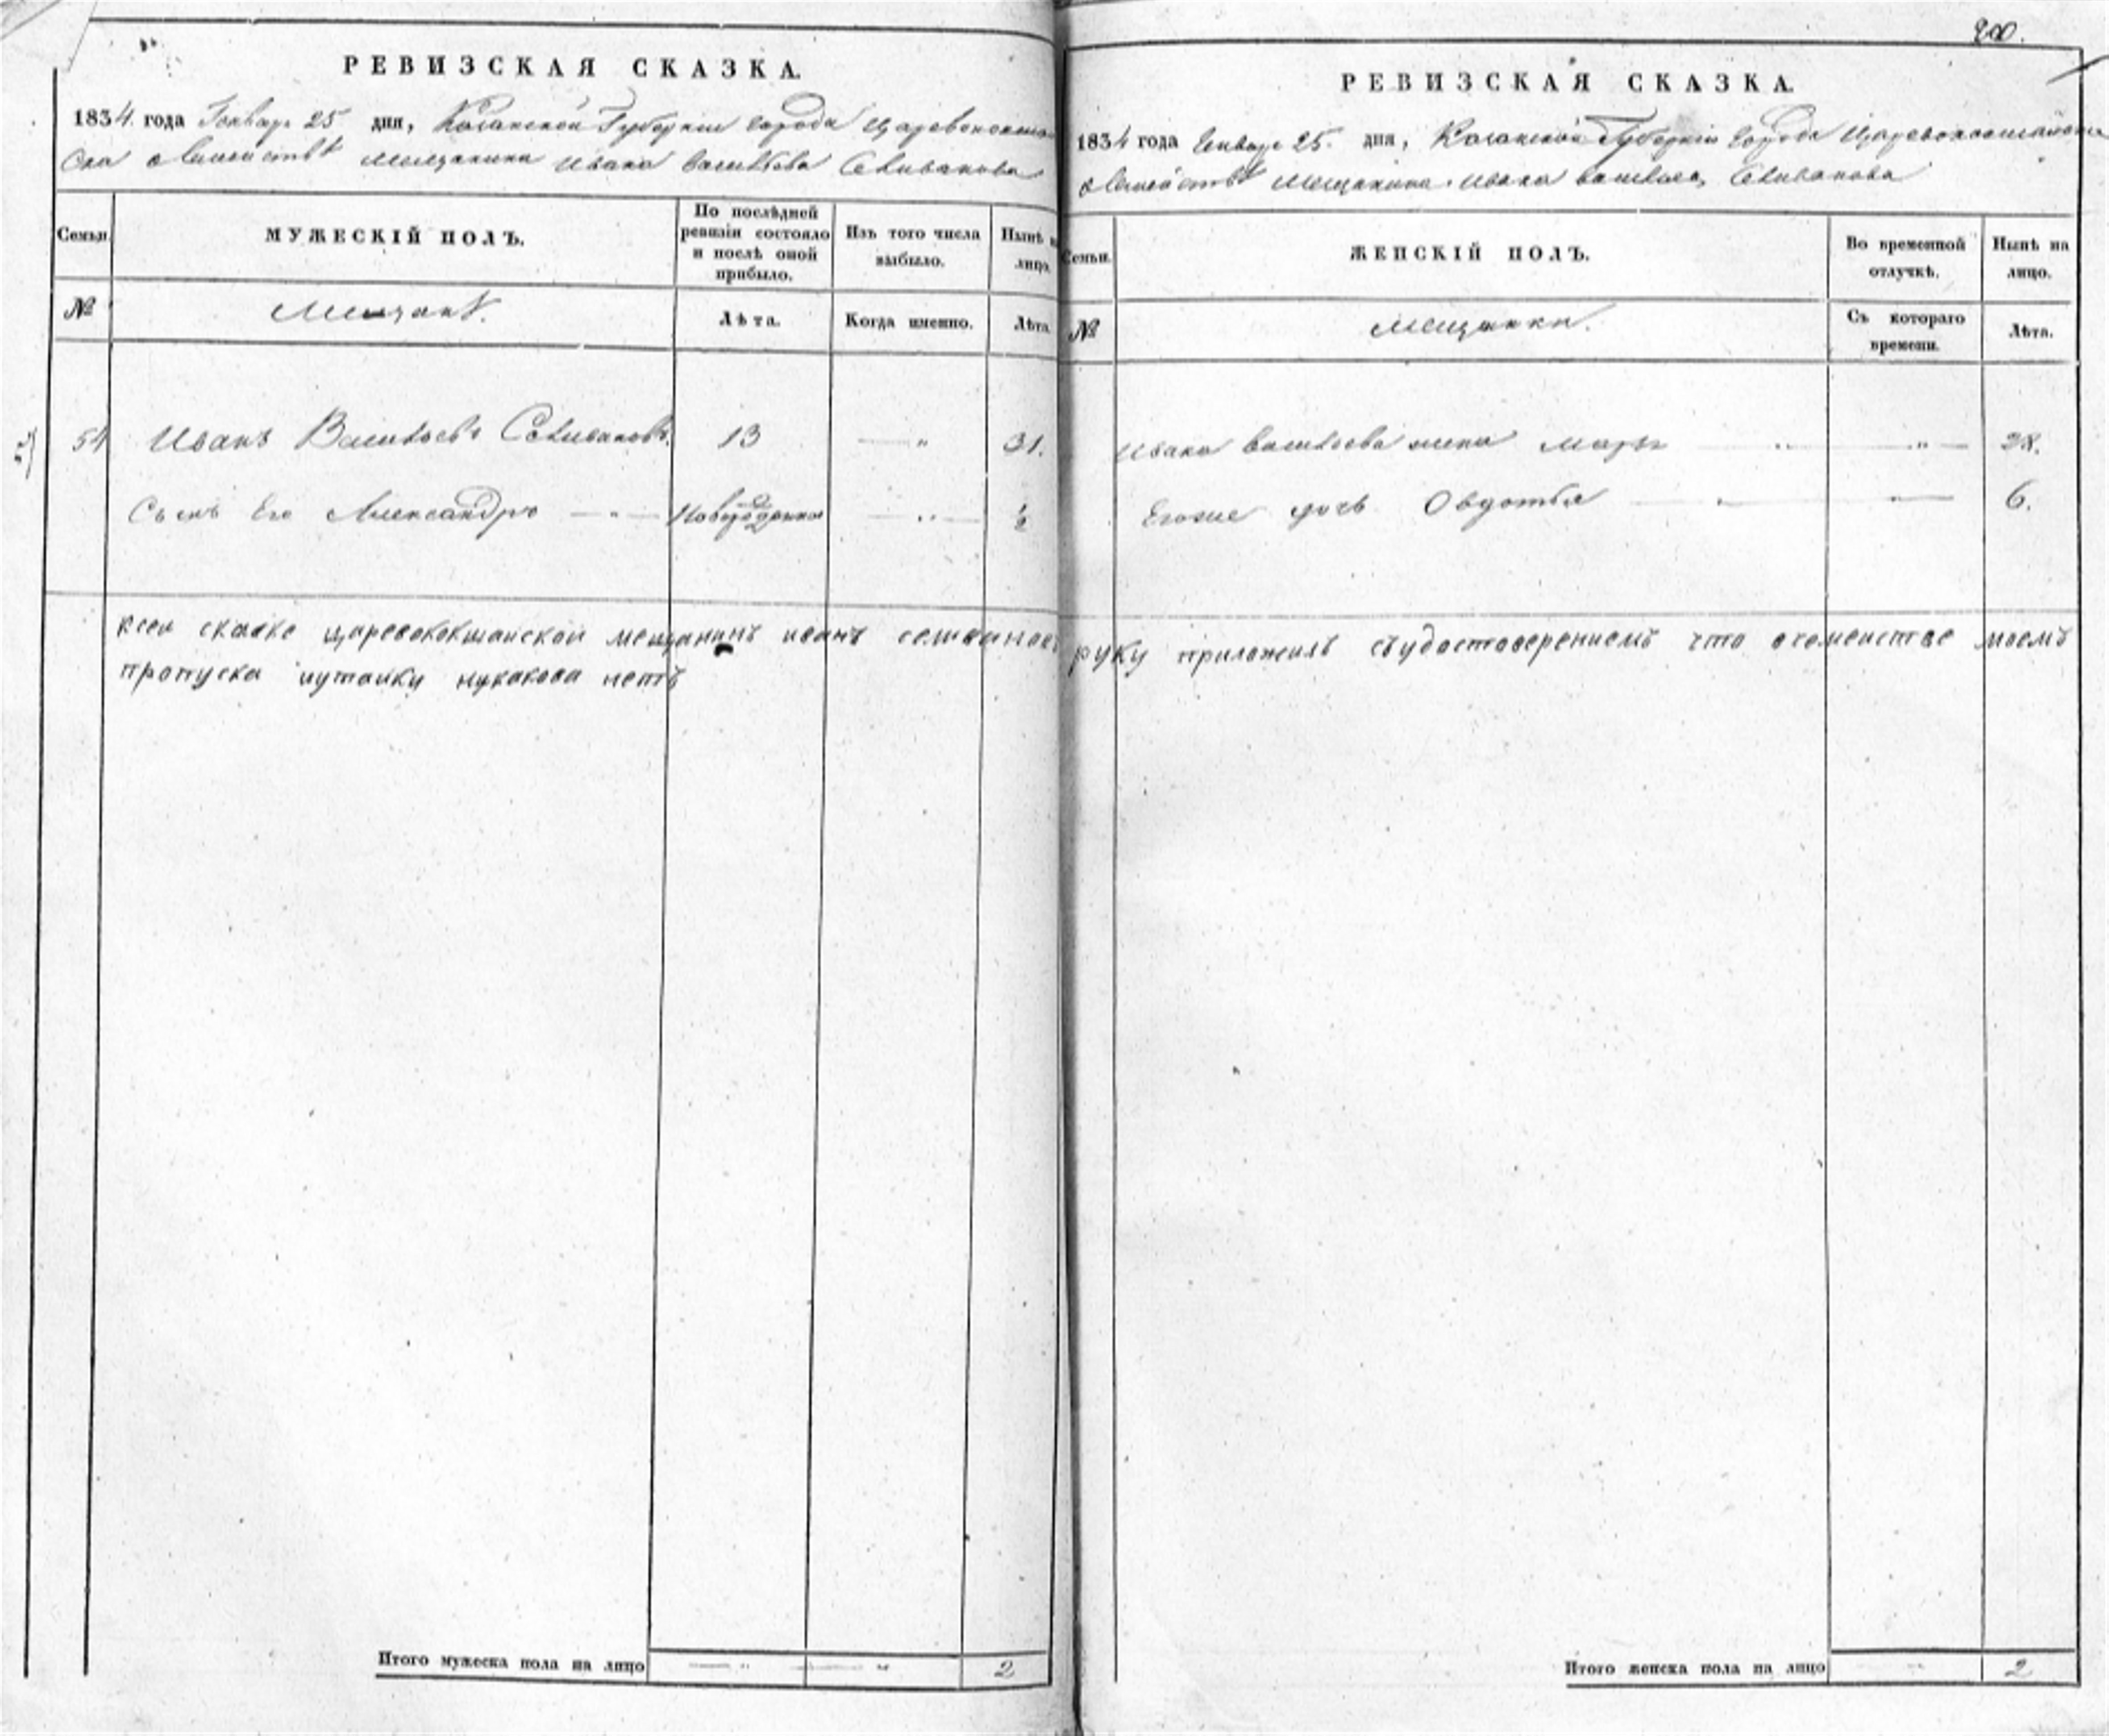 РЕВИЗСКАЯ СКАЗКА.
1834. года Генваря 25 дня, Казанской Губернии города Царевококшай
ска о Семействѣ мещанина Ивана Васильева Селиванова
Семьи.
МУЖЕСКІЙ ПОЛЪ.
По послѣдней ревизіи состояло и послѣ оной прибыло.
Изъ того числа выбыло.
Нынѣ на лицо.
№
Мещанѣ.
Лѣта.
Когда именно.
Лѣта.
54 Иванъ Васильевъ Селивановъ. 13 — „ 31.
Сынъ Его Александръ — „ — Новорожденной — „ — ½
ксеи скаске царевококшайской мещанинъ иванъ селивановъ
пропуска иутаики никакова нетъ
Итого мужеска пола на лицо — „ — „ 2
200.
РЕВИЗСКАЯ СКАЗКА.
1834 года Генваря 25. дня, Казанской Губерніи Города Царевококшайска
о Семействѣ Мещанина Ивана Васильева Селиванова
Семьи.
ЖЕНСКІЙ ПОЛЪ.
Во временной отлучкѣ.
Нынѣ на лицо.
№
Мещанки.
Съ котораго времени.
Лѣта.
Ивана Васильева жена Марья — „ — „ — 28.
Егоже дочь Овдотья — „ — „ — 6.
руку приложилъ съудостоверениемъ что осеменстве моемъ
Итого женска пола на лицо — 2